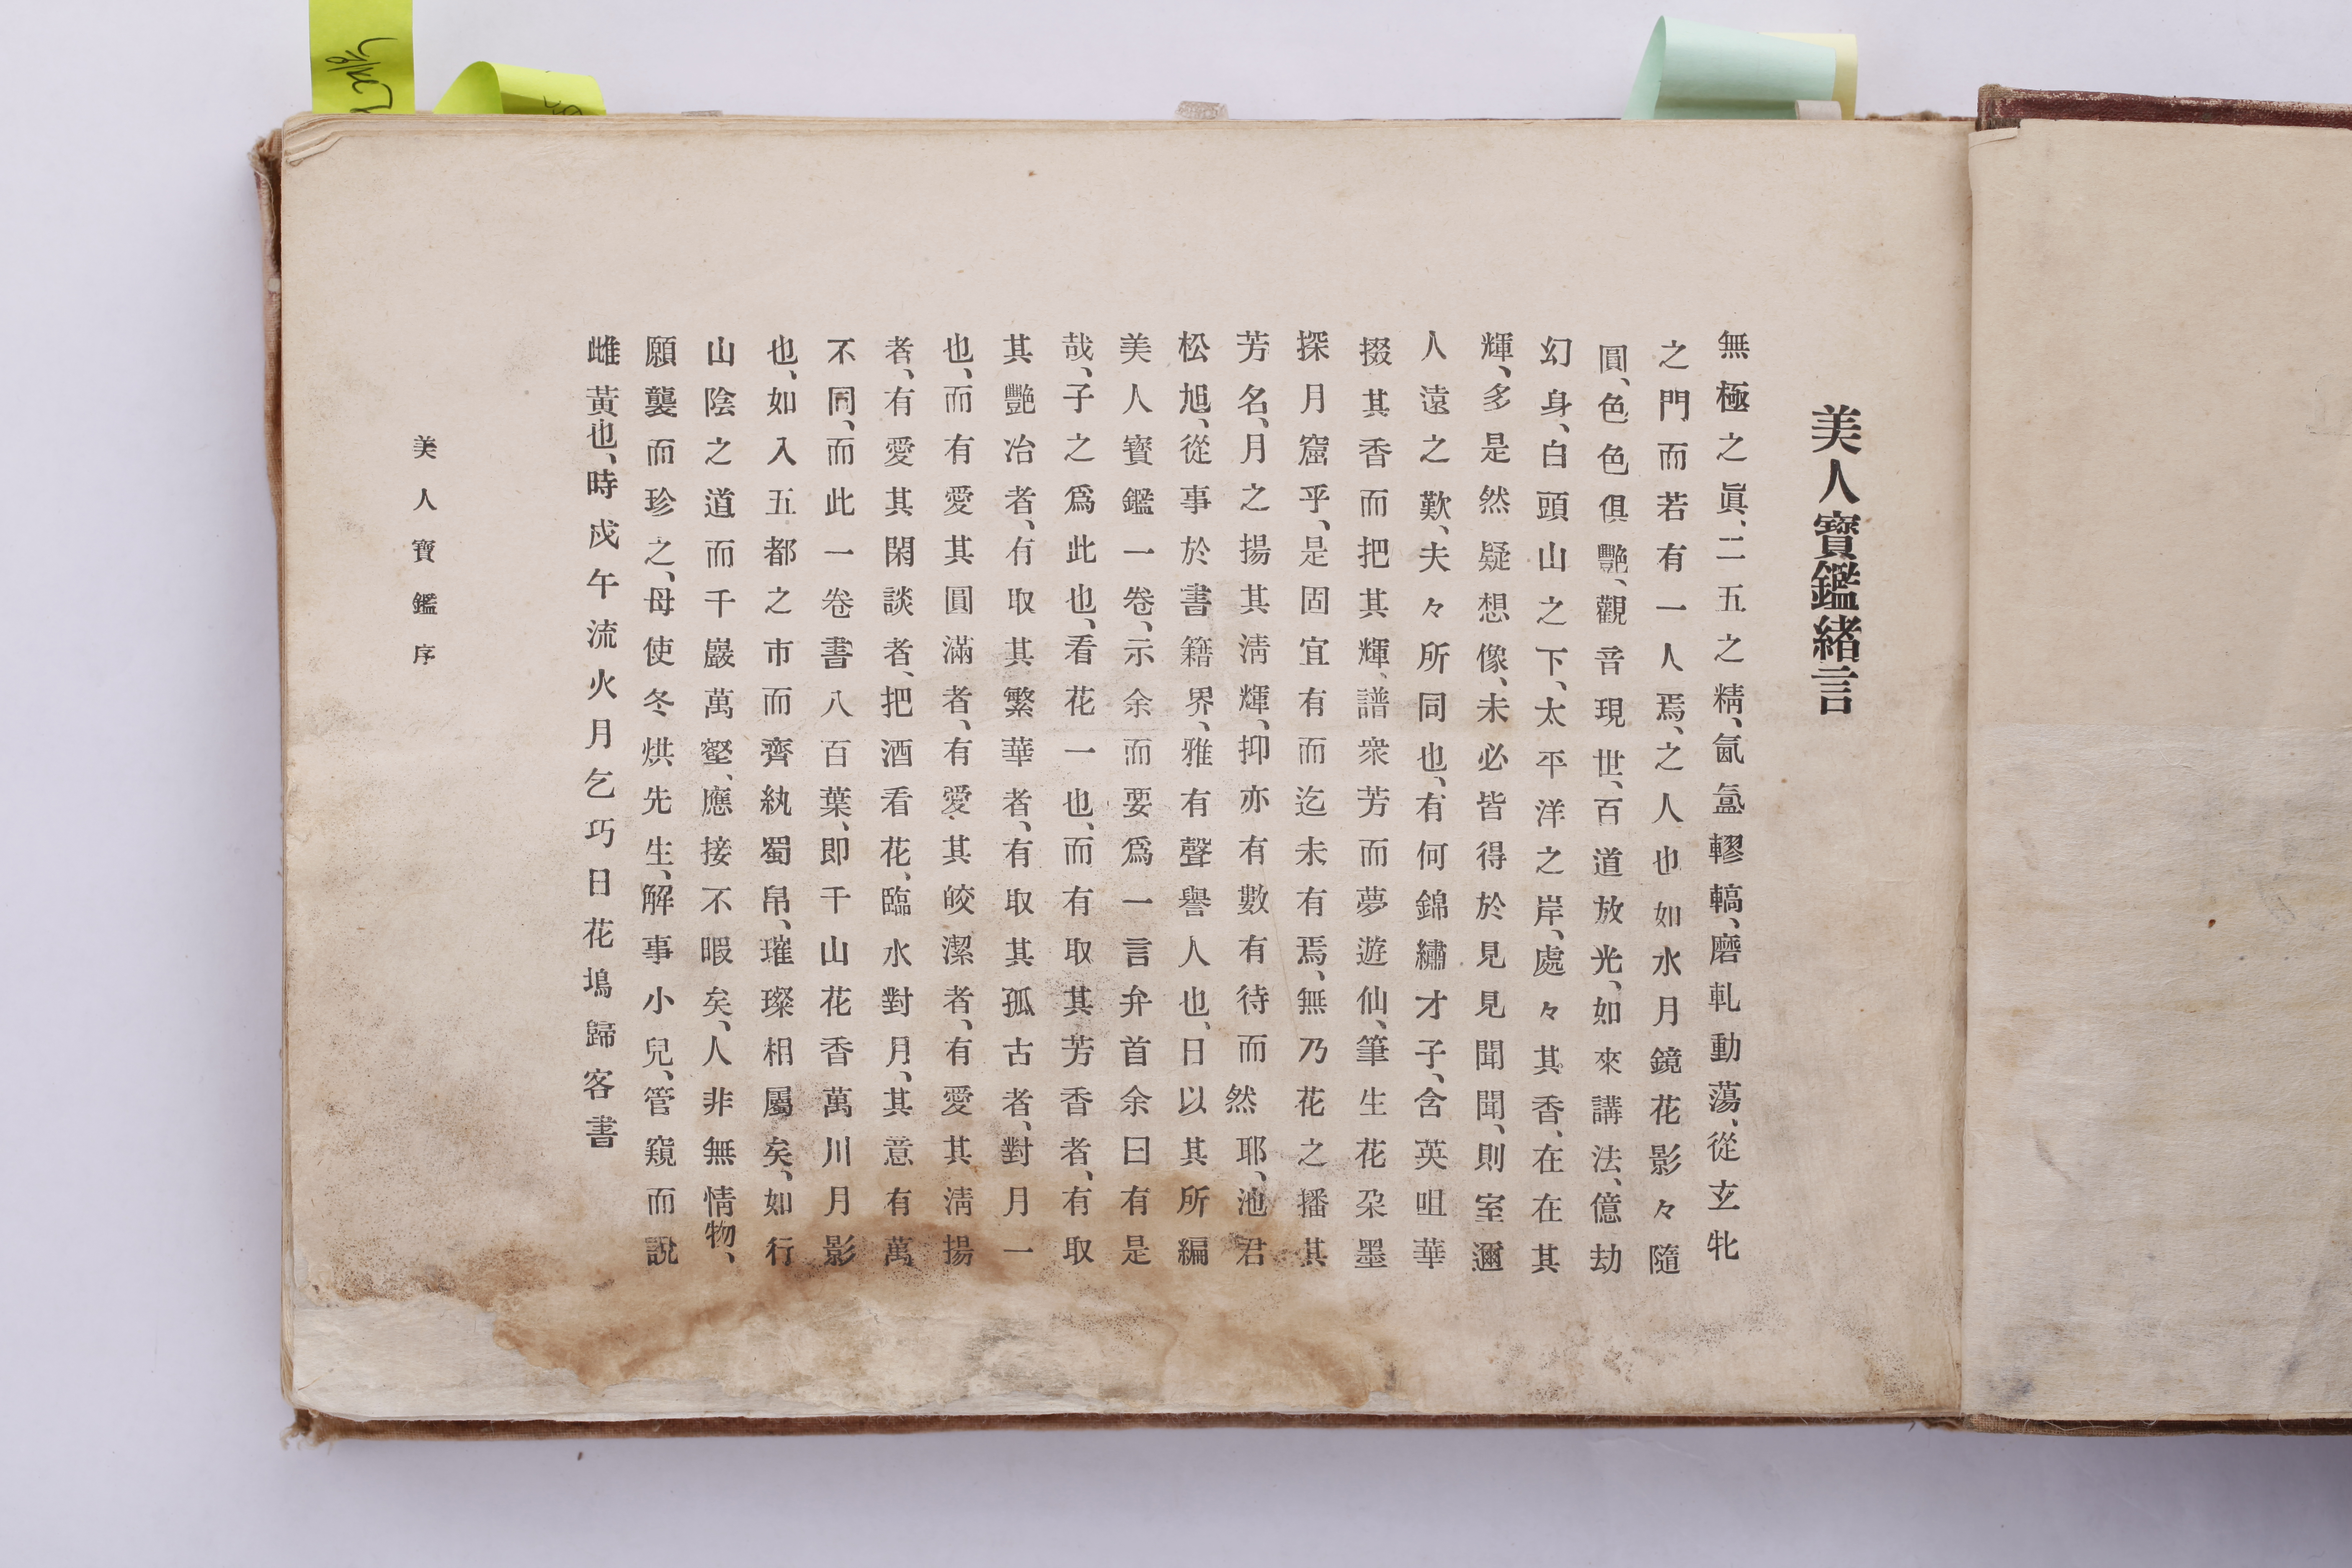 美人寶鑑緖言
無極之眞、二五之精、氤氳轇輵、磨軋動蕩、從玄牝
之門而若有一人焉、之人也如水月鏡花影々隨
圓、色色俱艷、觀音現世、百道放光、如來講法、億劫
幻身、白頭山之下、太平洋之岸、處々其香、在在其
輝、多是然疑想像、未必皆得於見見聞聞、則室邇
人遠之歎、夫々所同也、有何錦繡才子、含英咀華
掇其香而把其輝、譜衆芳而夢遊仙、筆生花朶墨
探月窟乎、是固宜有而迄未有焉、無乃花之播其
芳名、月之揚其淸輝、抑亦有數有待而然耶、池君
松旭、從事於書籍界、雅有聲譽人也、日以其所編
美人寶鑑一卷、示余而要爲一言弁首余曰有是
哉、子之爲此也、看花一也、而有取其芳香者、有取
其艷冶者、有取其繁華者、有取其孤古者、對月一
也、而有愛其圓滿者、有愛其皎潔者、有愛其淸揚
者、有愛其閑談者、把酒看花、臨水對月、其意有萬
不同、而此一卷書八百葉、即千山花香萬川月影
也、如入五都之市而齊紈蜀帛、璀璨相屬矣、如行
山陰之道而千巖萬壑、應接不暇矣、人非無情物、
願襲而珍之、毋使冬烘先生、解事小兒、管窺而說
雌黃也、時戊午流火月乞巧日花塢歸客書
美人寶鑑序